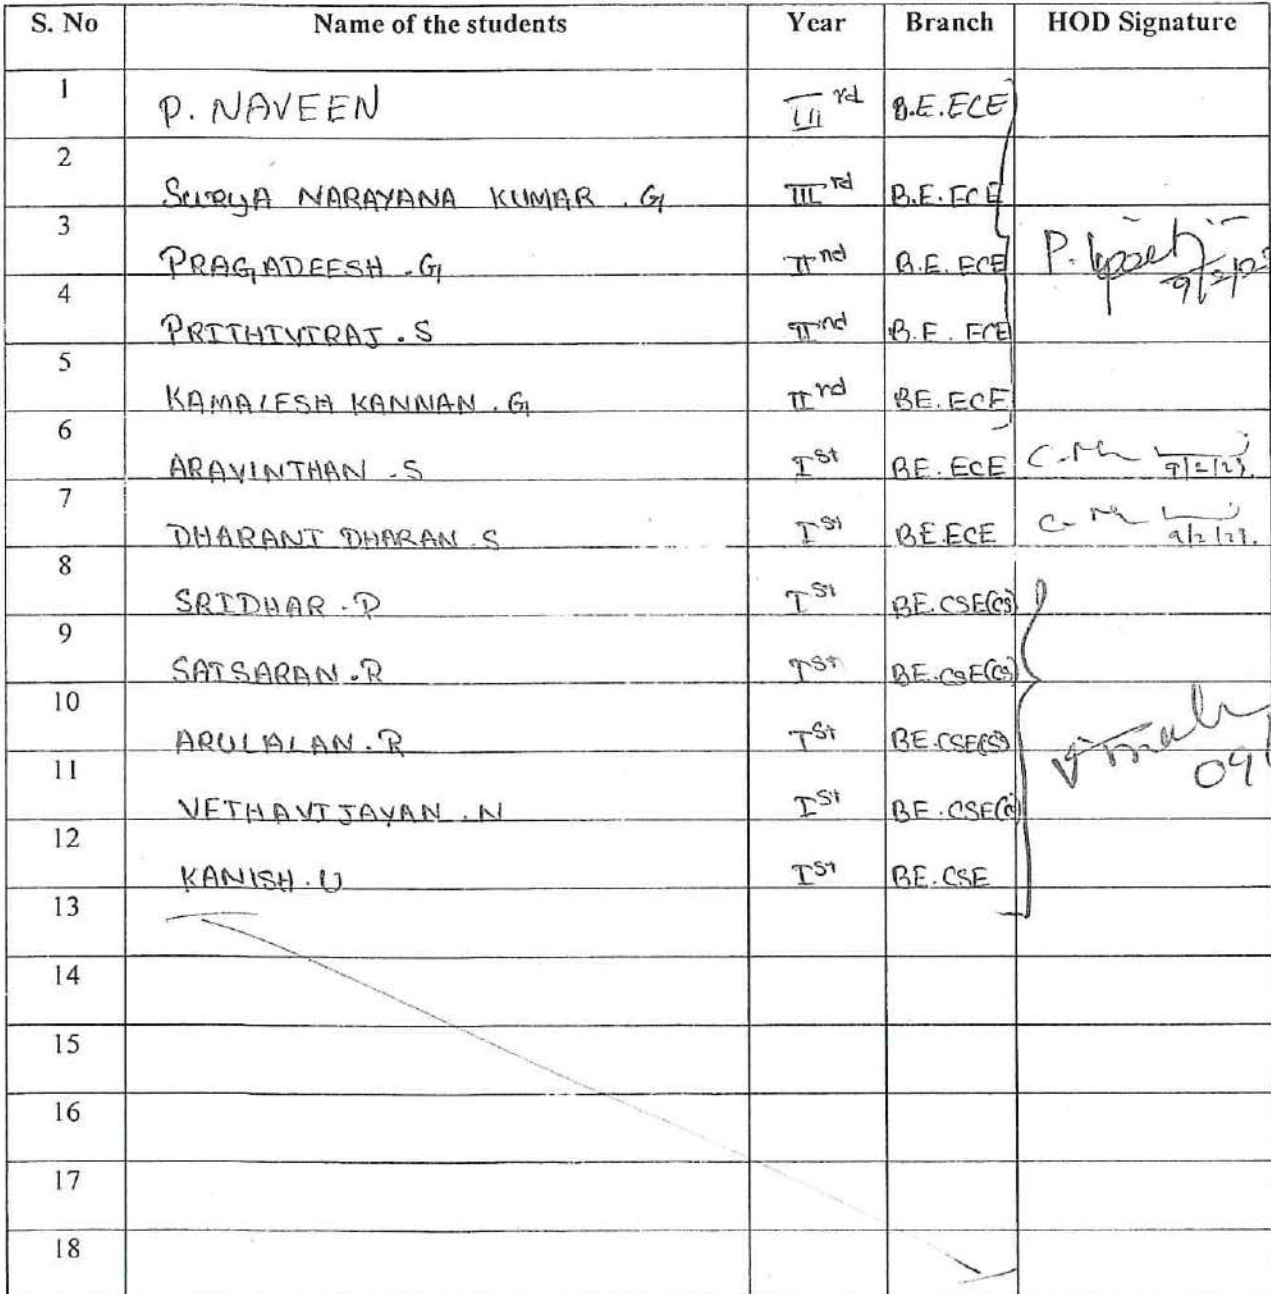 S. No Name of the students Year Branch HOD Signature
1 P. NAVEEN III rd B.E.ECE
2 SURYA NARAYANA KUMAR . G III rd B.E. ECE
3 PRAGADEESH . G II nd B.E. ECE
4 PRITHIVIRAJ . S II nd B.E. ECE
5 KAMALESH KANNAN . G II nd BE. ECE
6 ARAVINTHAN . S I st BE. ECE 9/2/23.
7 DHARANI DHARAN . S I st BE ECE 9/2/23.
8 SRIDHAR . D I st BE. CSE(CS)
9 SAISARAN . R I st BE. CSE(CS)
10 ARULALAN . R I st BE. CSE(CS)
11 VETHAVIJAYAN . N I st BE. CSE(CS)
12 KANISH . U I st BE. CSE
13
14
15
16
17
18